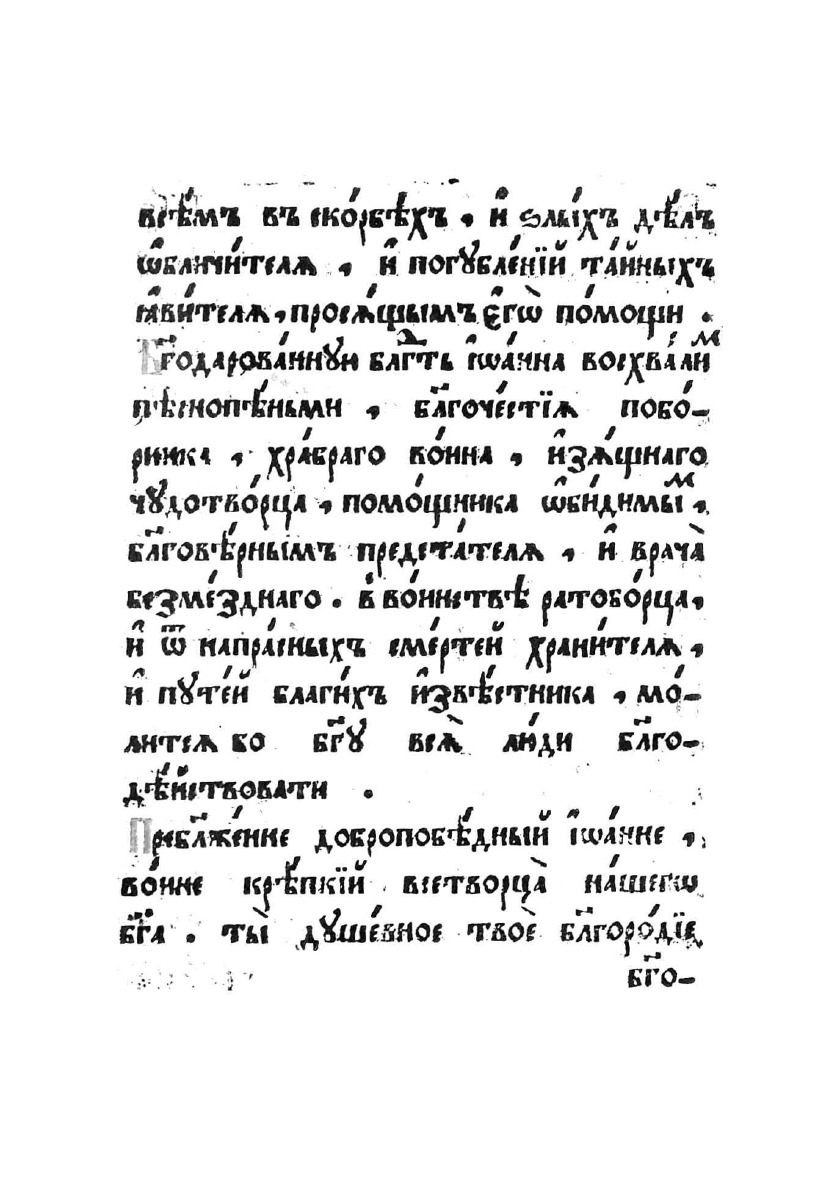 всѣ́мъ въ ско́рбѣхъ , и҆ ѕлы́хъ дѣ́лъ
ѡ҆бличи́телѧ , и҆ погꙋбле́нїй та́йныхъ
ꙗ҆ви́телѧ , просѧ́щымъ є҆гѡ̀ по́мощи .
Бг҃одарова́ннꙋи благⷣть і҆ѡа́нна восхва́лиⷨ
пѣснопѣ́ньми , бл҃гоче́стїѧ побо́-
рника , хра́браго во́ина , и҆зѧ́щнаго
чꙋдотво́рца , помо́щника ѡ҆би́димыⷨ ,
бл҃говѣ́рнымъ предста́телѧ , и҆ врача̀
безме́зднаго . в҆ во́инствѣ ратобо́рца ,
и҆ ѿ напра́сныхъ сме́ртей храни́телѧ ,
и҆ пꙋте́й благи́хъ и҆звѣ́стника , мо́-
литсѧ бо бг҃ꙋ всѧ̀ лю́ди бл҃го-
дѣ́йствовати .
Пребл҃же́нне добропобѣ́дный і҆ѡа́нне ,
во́ине крѣ́пкїй всетворца̀ на́шегѡ
бг҃а . ты̀ дꙋше́вное твоѐ бл҃горо́дїе
бг҃о-